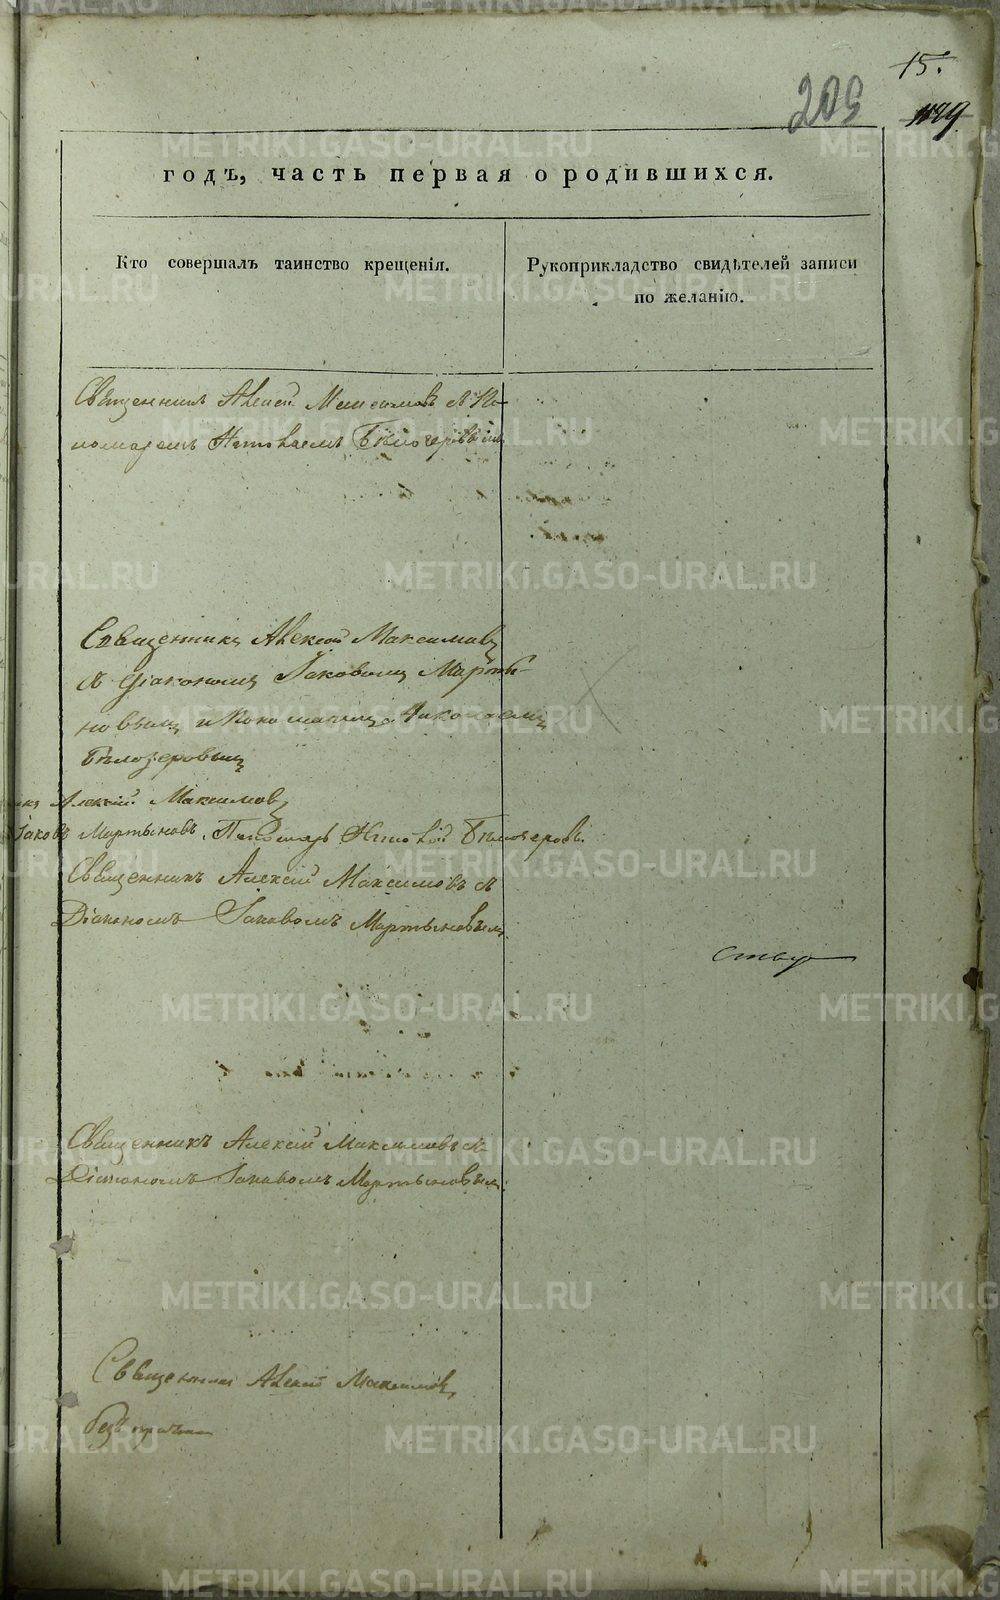 15.
209
годъ, часть первая о родившихся.
Кто совершалъ таинство крещенія.
Рукоприкладство свидѣтелей записи
по желанію.
Священникъ Алексѣй Максимовъ съ По
номаремъ Николаемъ Бѣлозеровымъ
Священникъ Алексѣй Максимовъ
съ Діакономъ Іаковомъ Марты-
новымъ и Пономаремъ Николаемъ
Бѣлозеровымъ
Алексѣй Максимовъ
Іаковъ Мартыновъ. Пономарь Николай Бѣлозеровъ.
Священникъ Алексѣй Максимовъ съ
Діакономъ Іаковомъ Мартыновымъ
Священникъ Алексѣй Максимовъ съ
Діакономъ Іаковомъ Мартыновымъ
Священникъ Алексѣй Максимовъ
безъ причта
METRIKI.GASO-URAL.RU